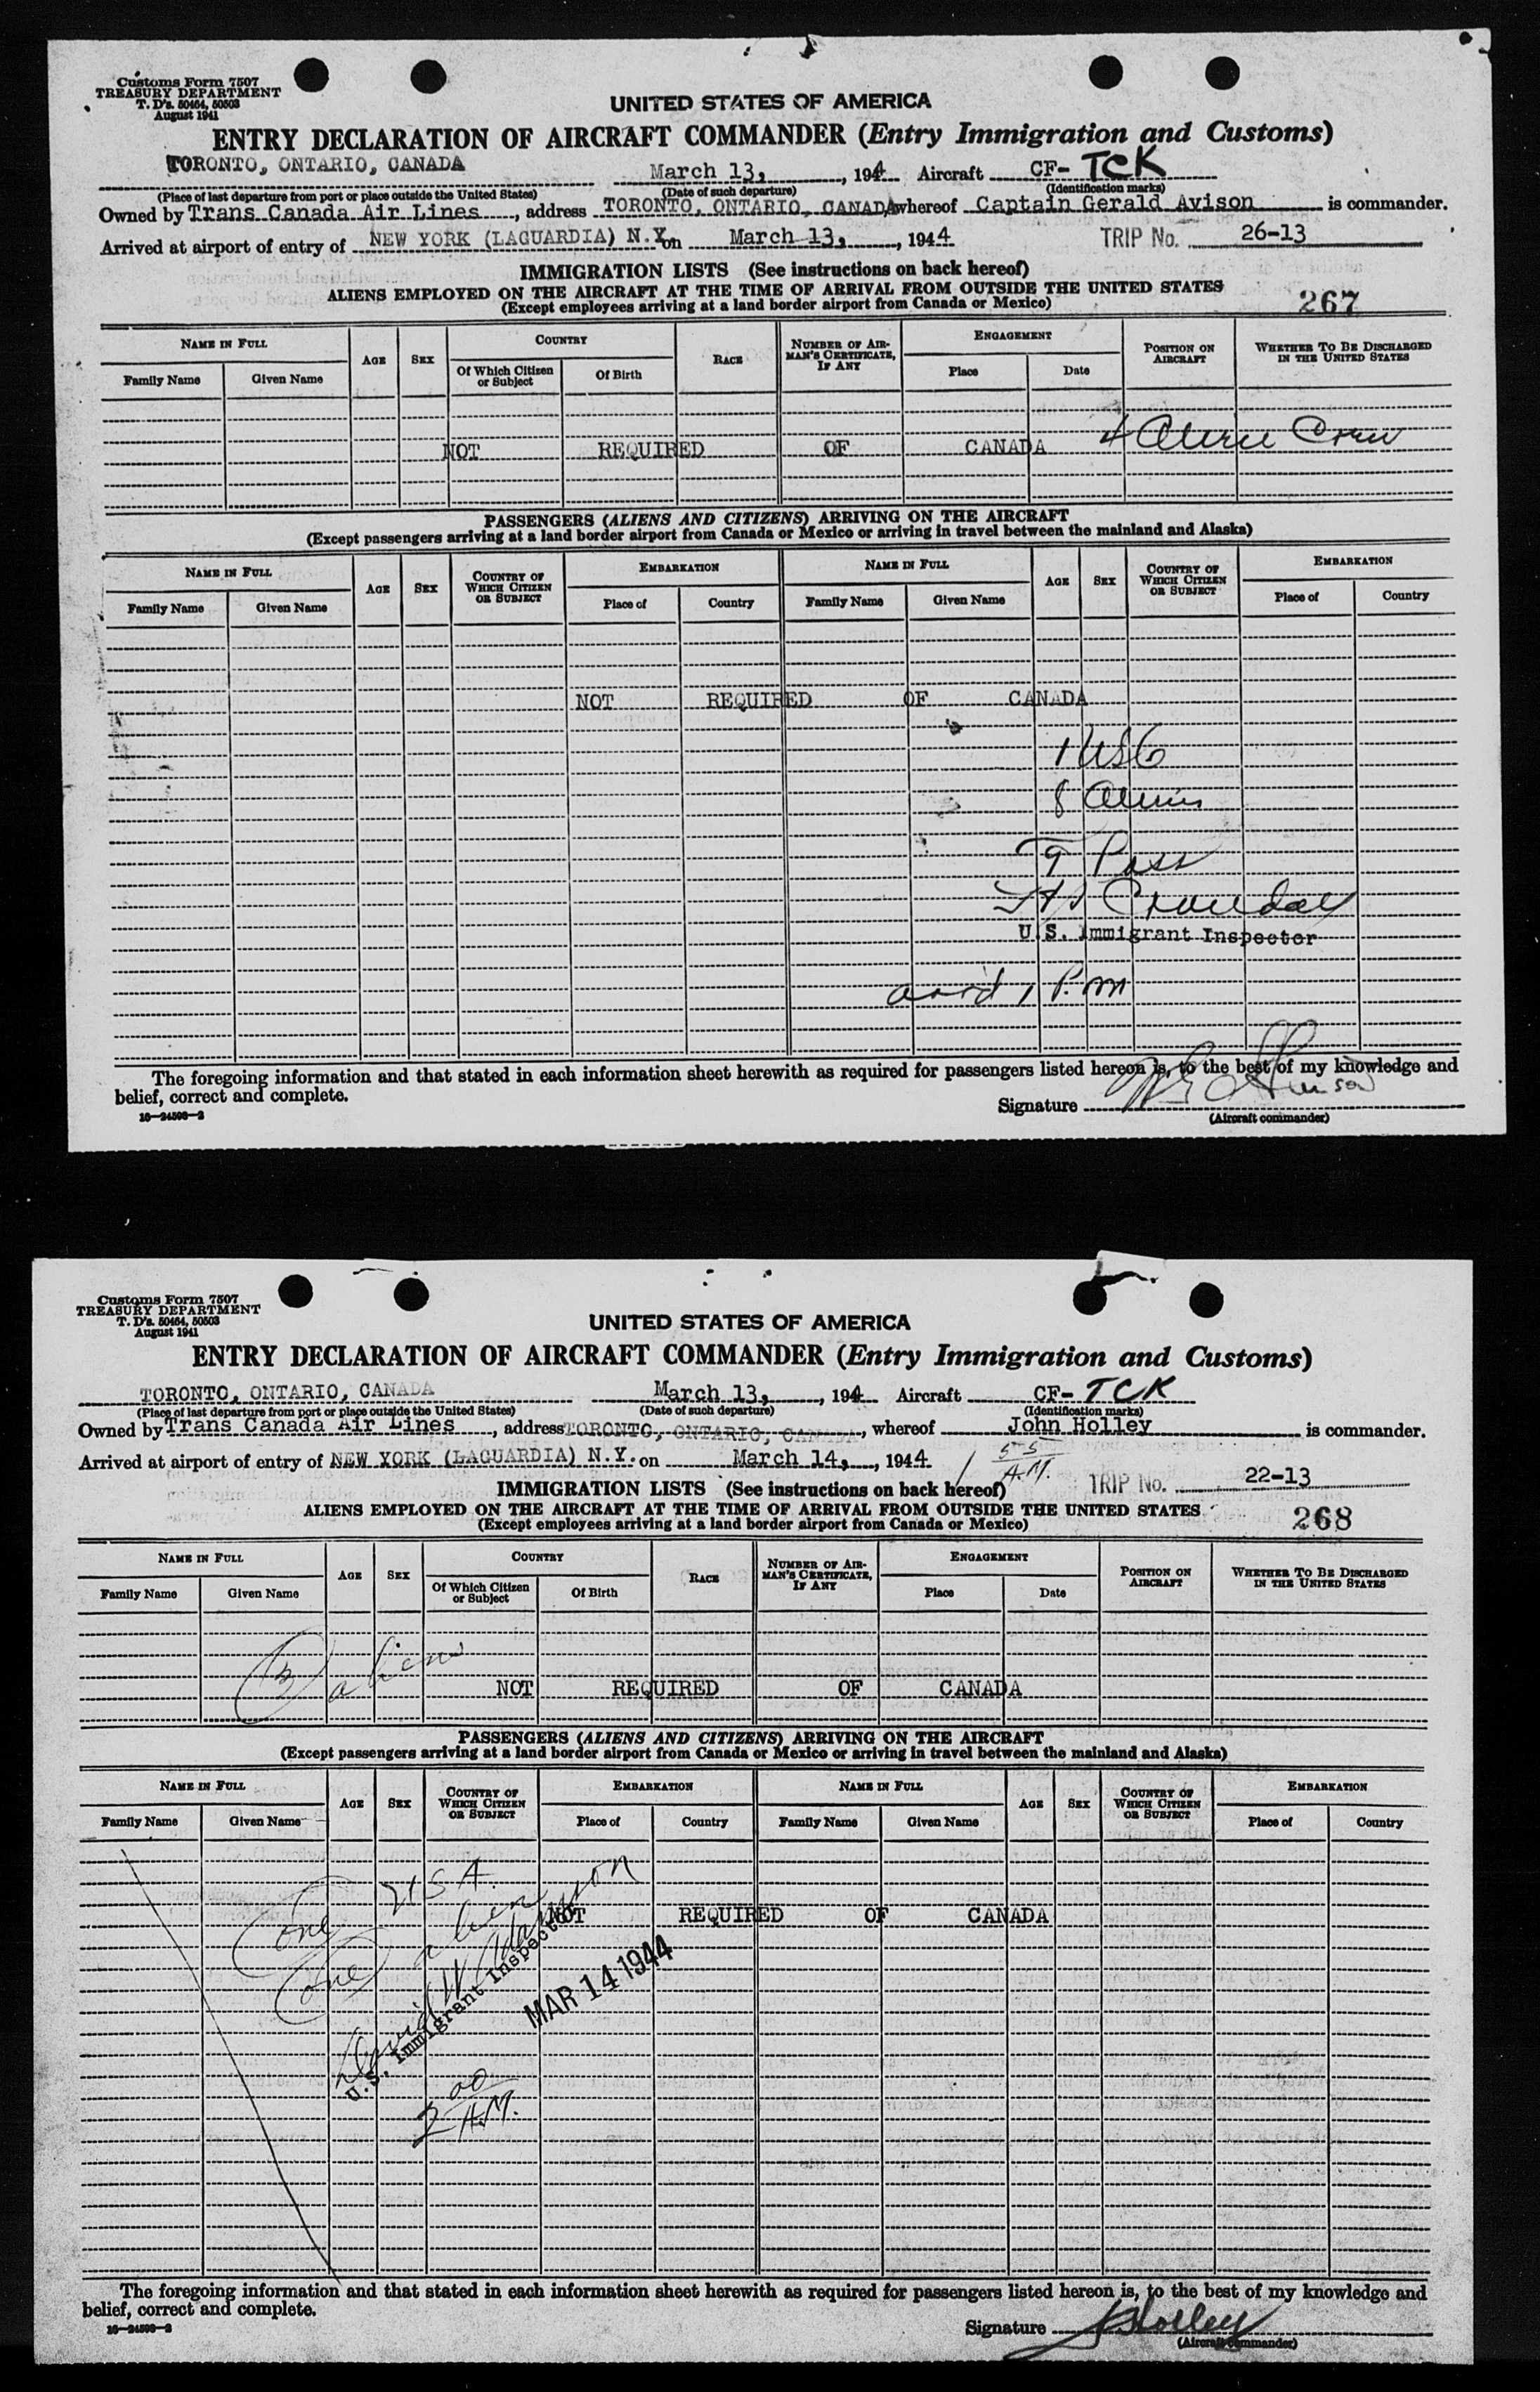 Customs Form 7507
TREASURY DEPARTMENT
T. D's. 50464, 50503
August 1941
UNITED STATES OF AMERICA
ENTRY DECLARATION OF AIRCRAFT COMMANDER (Entry Immigration and Customs)
TORONTO, ONTARIO, CANADA March 13, , 194 4 Aircraft CF- TCK
(Place of last departure from port or place outside the United States) (Date of such departure) (Identification marks)
Owned by Trans Canada Air Lines , address TORONTO, ONTARIO, CANADA, whereof Captain Gerald Avison is commander.
Arrived at airport of entry of NEW YORK (LAGUARDIA) N.Y. on March 13, , 1944 TRIP No. 26-13
IMMIGRATION LISTS (See instructions on back hereof)
ALIENS EMPLOYED ON THE AIRCRAFT AT THE TIME OF ARRIVAL FROM OUTSIDE THE UNITED STATES
(Except employees arriving at a land border airport from Canada or Mexico) 267
NAME IN FULL AGE SEX COUNTRY RACE NUMBER OF AIRMAN'S CERTIFICATE, IF ANY ENGAGEMENT POSITION ON AIRCRAFT WHETHER TO BE DISCHARGED IN THE UNITED STATES
Family Name Given Name Of Which Citizen or Subject Of Birth Place Date
4 Alien Crew
NOT REQUIRED OF CANADA
PASSENGERS (ALIENS AND CITIZENS) ARRIVING ON THE AIRCRAFT
(Except passengers arriving at a land border airport from Canada or Mexico or arriving in travel between the mainland and Alaska)
NAME IN FULL AGE SEX COUNTRY OF WHICH CITIZEN OR SUBJECT EMBARKATION NAME IN FULL AGE SEX COUNTRY OF WHICH CITIZEN OR SUBJECT EMBARKATION
Family Name Given Name Place of Country Family Name Given Name Place of Country
NOT REQUIRED OF CANADA
1 USC
8 Aliens
9 Pass
Crandall
U.S. Immigrant Inspector
arr'd 1 P.m
The foregoing information and that stated in each information sheet herewith as required for passengers listed hereon is, to the best of my knowledge and
belief, correct and complete.
Signature
16—24508-2 (Aircraft commander)
Customs Form 7507
TREASURY DEPARTMENT
T. D's. 50464, 50503
August 1941
UNITED STATES OF AMERICA
ENTRY DECLARATION OF AIRCRAFT COMMANDER (Entry Immigration and Customs)
TORONTO, ONTARIO, CANADA March 13, , 194 4 Aircraft CF- TCK
(Place of last departure from port or place outside the United States) (Date of such departure) (Identification marks)
Owned by Trans Canada Air Lines , address TORONTO, ONTARIO, CANADA , whereof John Holley is commander.
Arrived at airport of entry of NEW YORK (LAGUARDIA) N.Y. on March 14, , 1944 1 55 A.M. TRIP No. 22-13
IMMIGRATION LISTS (See instructions on back hereof)
ALIENS EMPLOYED ON THE AIRCRAFT AT THE TIME OF ARRIVAL FROM OUTSIDE THE UNITED STATES
(Except employees arriving at a land border airport from Canada or Mexico) 268
NAME IN FULL AGE SEX COUNTRY RACE NUMBER OF AIRMAN'S CERTIFICATE, IF ANY ENGAGEMENT POSITION ON AIRCRAFT WHETHER TO BE DISCHARGED IN THE UNITED STATES
Family Name Given Name Of Which Citizen or Subject Of Birth Place Date
(3) aliens
NOT REQUIRED OF CANADA
PASSENGERS (ALIENS AND CITIZENS) ARRIVING ON THE AIRCRAFT
(Except passengers arriving at a land border airport from Canada or Mexico or arriving in travel between the mainland and Alaska)
NAME IN FULL AGE SEX COUNTRY OF WHICH CITIZEN OR SUBJECT EMBARKATION NAME IN FULL AGE SEX COUNTRY OF WHICH CITIZEN OR SUBJECT EMBARKATION
Family Name Given Name Place of Country Family Name Given Name Place of Country
(one) USA.
NOT REQUIRED OF CANADA
(one) alien
David W Adamson
U.S. Immigrant Inspector
MAR 14 1944
2 00 A.M.
The foregoing information and that stated in each information sheet herewith as required for passengers listed hereon is, to the best of my knowledge and
belief, correct and complete.
Signature J Holley
16—24508-2 (Aircraft commander)